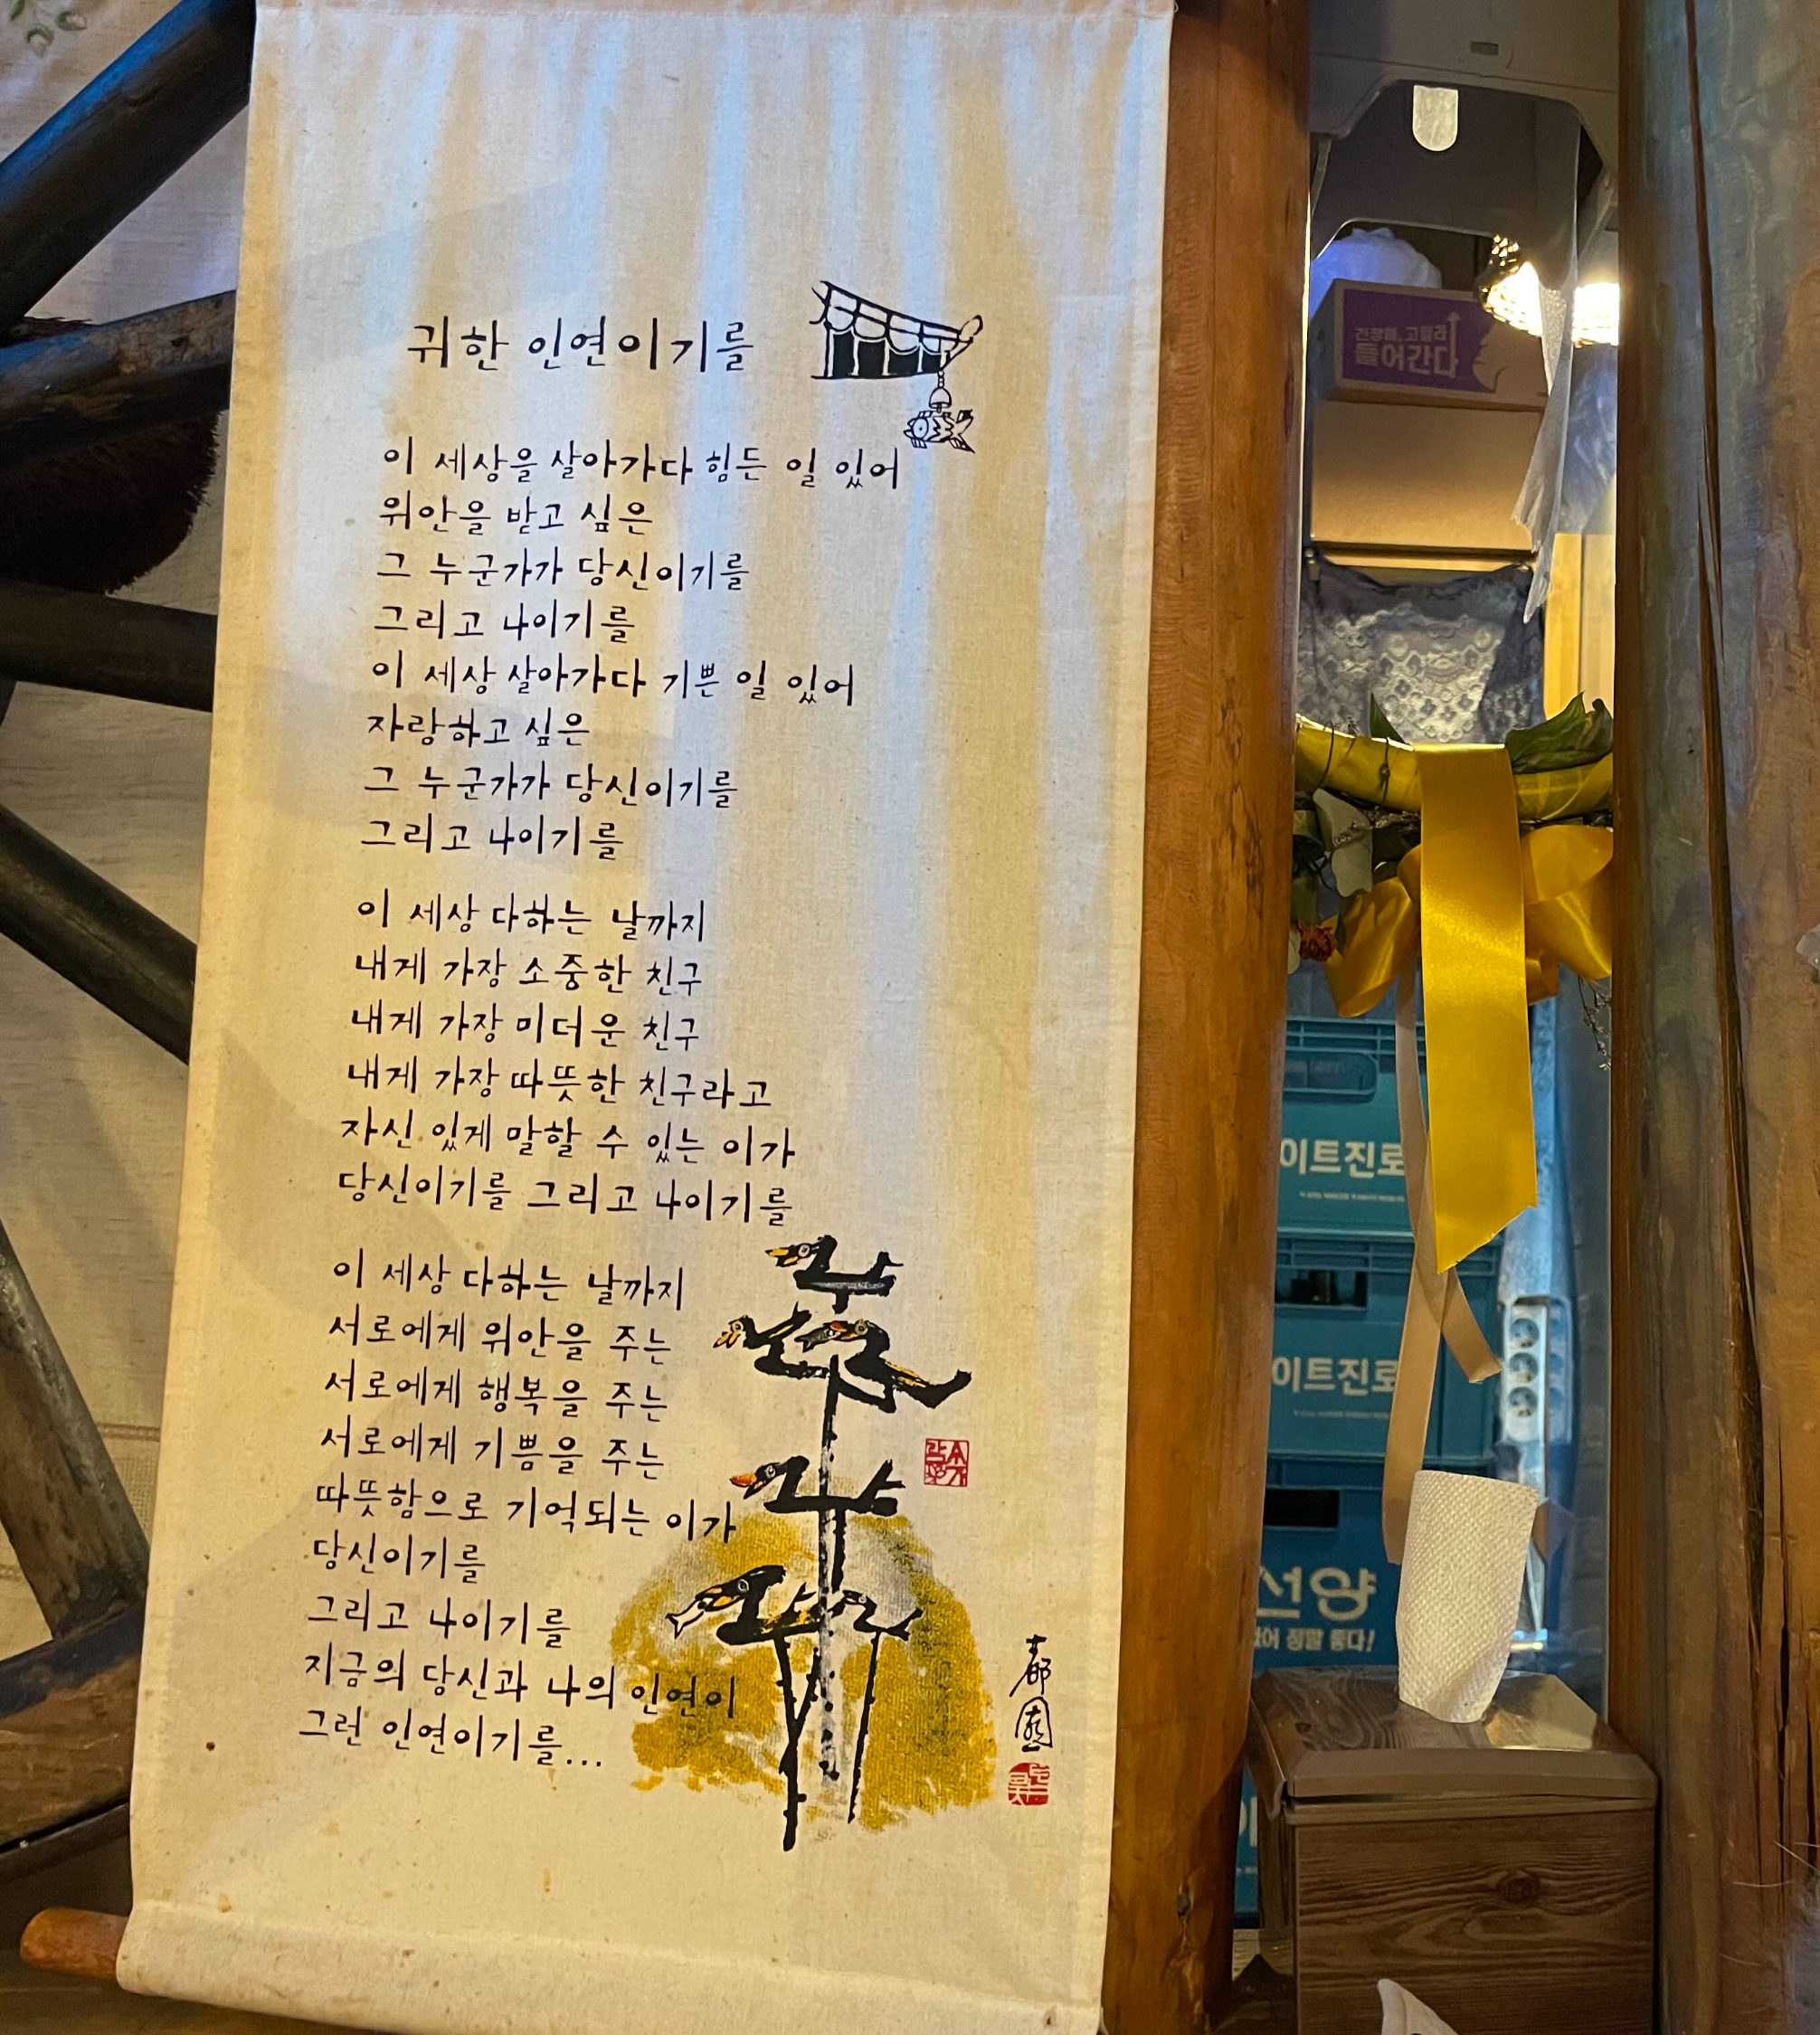 귀한 인연이기를
이 세상을 살아가다 힘든 일 있어
위안을 받고 싶은
그 누군가가 당신이기를
그리고 나이기를
이 세상 살아가다 기쁜 일 있어
자랑하고 싶은
그 누군가가 당신이기를
그리고 나이기를
이 세상 다하는 날까지
내게 가장 소중한 친구
내게 가장 미더운 친구
내게 가장 따뜻한 친구라고
자신 있게 말할 수 있는 이가
당신이기를 그리고 나이기를
이 세상 다하는 날까지
서로에게 위안을 주는
서로에게 행복을 주는
서로에게 기쁨을 주는
따뜻함으로 기억되는 이가
당신이기를
그리고 나이기를
지금의 당신과 나의 인연이
그런 인연이기를...
들어간다
이트진로
이트진로
선양